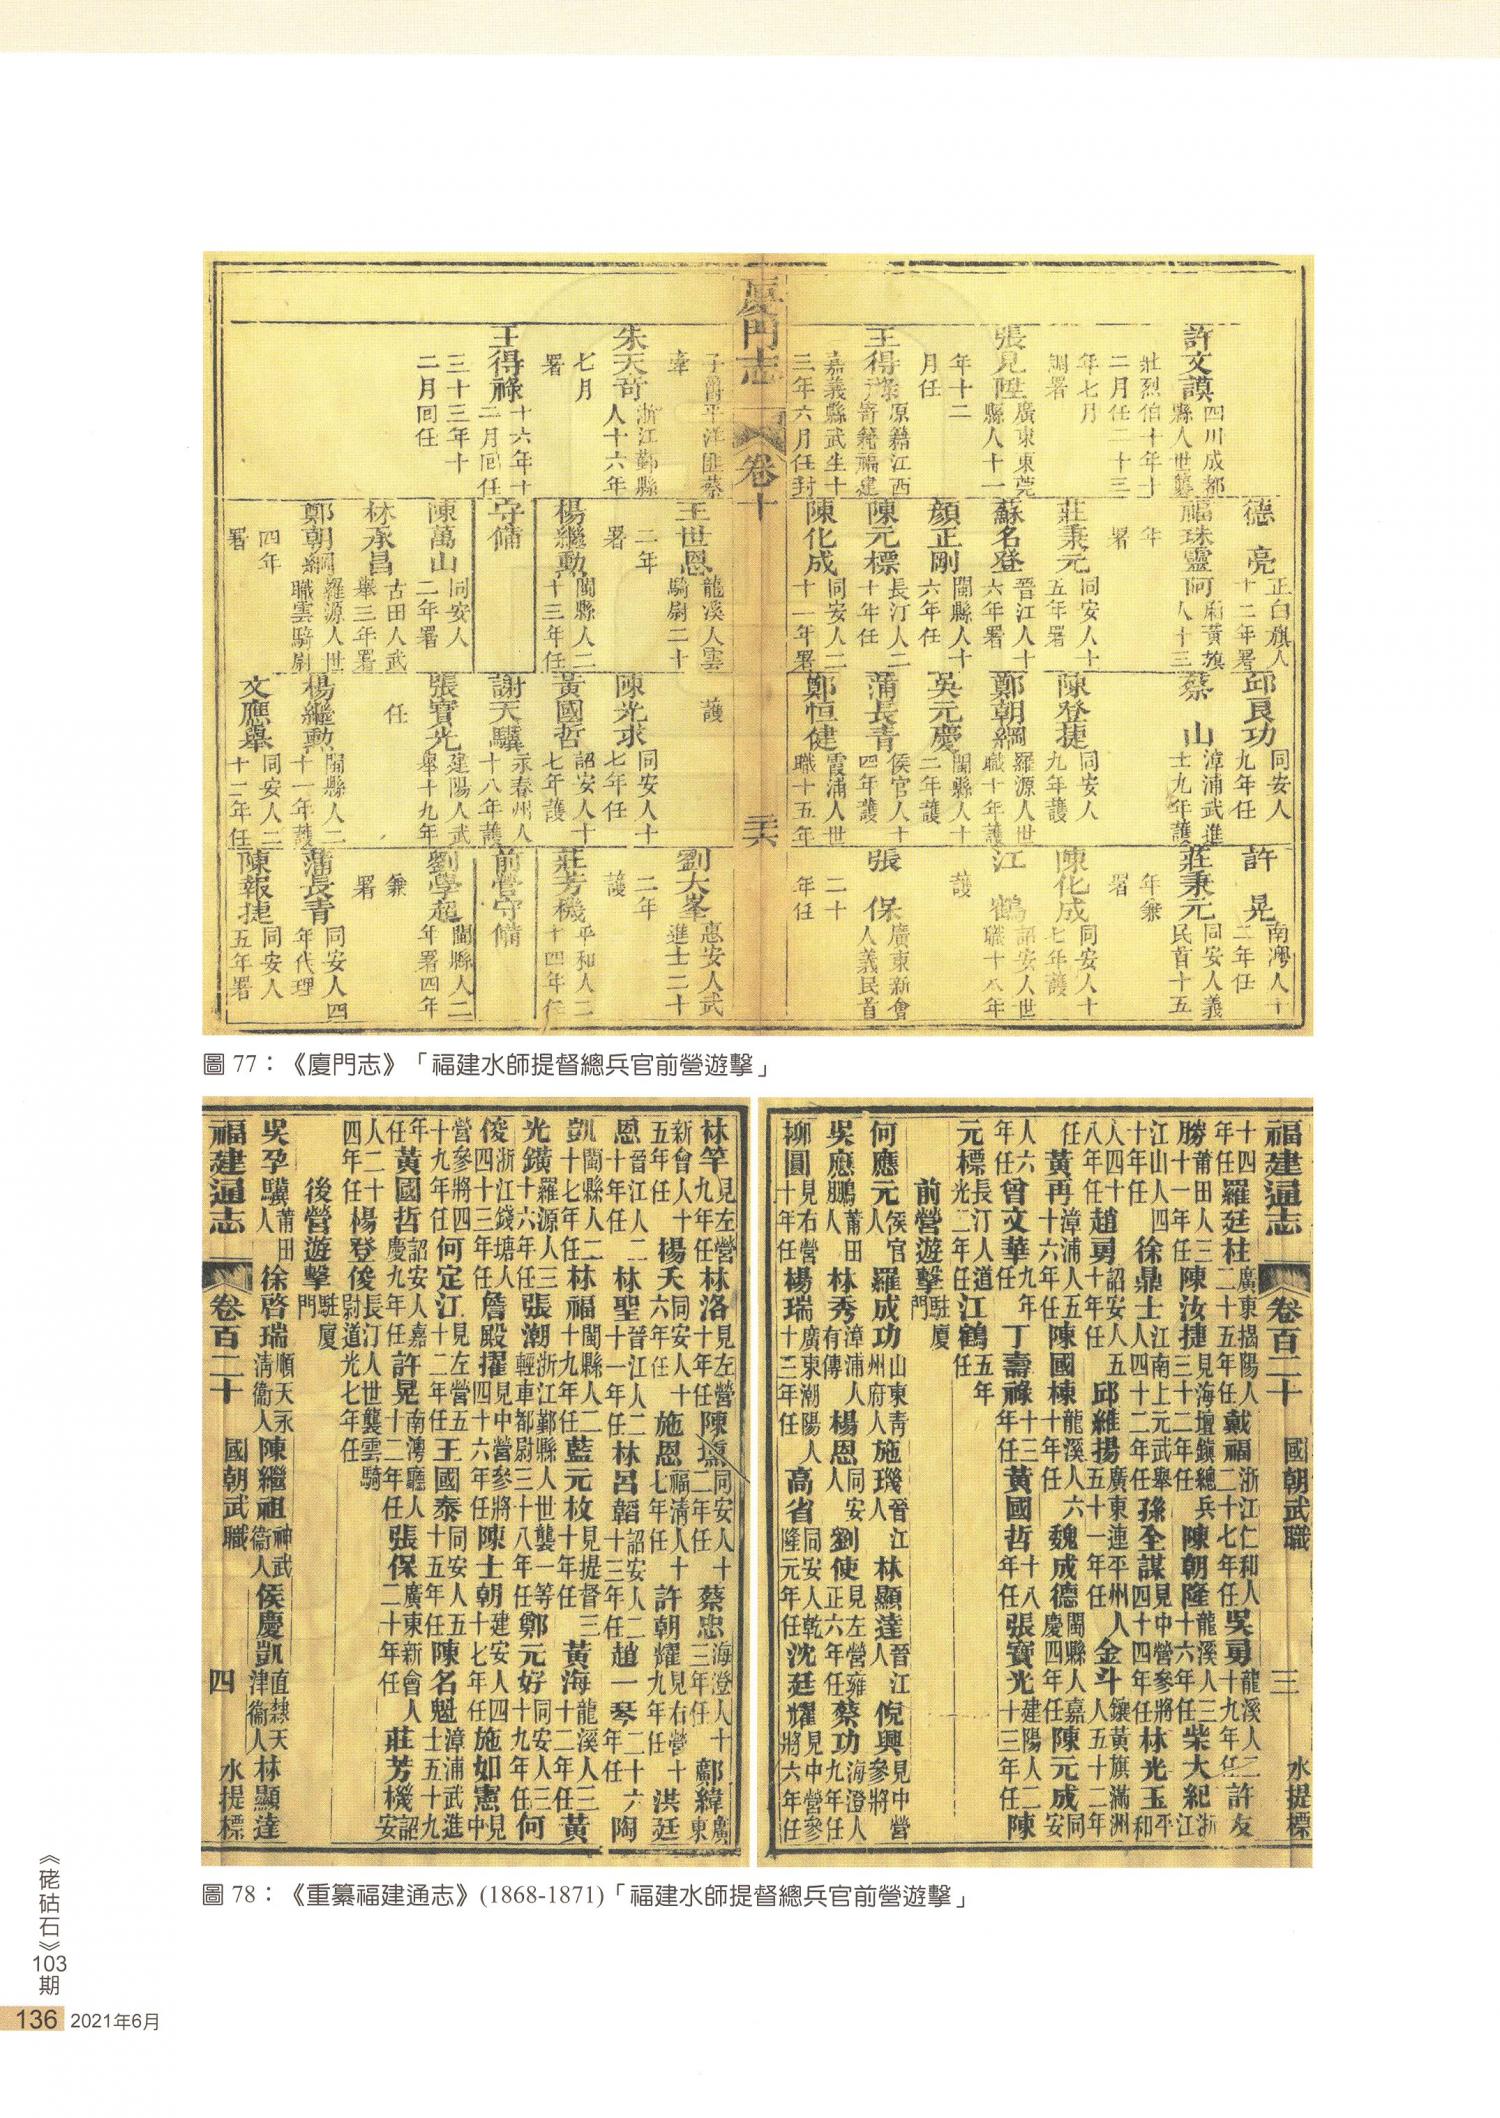 許文謨 四川成都縣人世襲壯烈伯十年十二月任二十三年七月調署
張見陞 廣東東莞縣人十一年十二月任
王得祿 原籍江西寄籍福建嘉義縣武生十三年六月任封子爵平洋匪蔡牽
朱天奇 浙江鄞縣人十六年七月署
王得祿 十六年十二月回任三十三年十二月回任
德亮 正白旗人十二年署
福珠靈阿 廂黃旗人十三年署
莊秉元 同安人十五年署
蘇名登 晉江人十六年署
顏正剛 閩縣人十六年任
陳元標 長汀人二十年任
陳化成 同安人二十一年署
王世恩 龍溪人雲騎尉二十二年署
楊繼勳 閩縣人二十三年任
守備
陳萬山 同安人二年署
林承昌 古田人武舉三年署
鄭朝綱 羅源人世職雲騎尉四年署
邱良功 同安人九年任
蔡山 漳浦武進士九年護
陳登捷 同安人十九年護
鄭朝綱 羅源人世職十年護
吳元慶 閩縣人十二年護
蒲長青 侯官人十四年護
鄭恒健 霞浦人世職十五年護
陳光求 同安人十七年任
黃國哲 詔安人十七年護
謝天驥 永春州人十八年護
張寶光 建陽人武舉十九年任
楊繼勳 閩縣人二十一年護
文應舉 同安人二十二年任
許晃 南灣人十二年任
莊秉元 同安人義民首十五年兼署
陳化成 同安人十七年護
江鶴 詔安人世職十八年護
張保 廣東新會人義民首二十年任
劉大峯 惠安人武進士二十二年護
莊芳機 平和人二十四年任
前營守備
劉學超 閩縣人二年署四年兼署
蒲長青 同安人四年代理
陳報捷 同安人五年署
廈門志 卷十 二十六
圖 77：《廈門志》「福建水師提督總兵官前營遊擊」
福建通志 卷百二十 國朝武職 三 水提標
十四年任 羅廷柱 廣東揭陽人二十五年任 戴福 浙江仁和人二十七年任 吳勇 龍溪人二十九年任 許友
勝 莆田人三十一年任 陳汝捷 見海壇鎮總兵三十二年任 陳朝隆 龍溪人三十六年任 柴大紀 浙江
江山人四十年任 徐鼎士 江南上元武舉人四十二年任 孫全謀 見中營參將四十四年任 林光玉 平和
人四十八年任 趙勇 詔安人五十年任 邱維揚 廣東連平州人五十一年任 金斗 鑲黃旗滿洲人五十二年
任 黃再 漳浦人五十六年任 陳國棟 龍溪人六十年任 魏成德 閩縣人嘉慶四年任 陳元成 同安
人六年任 曾文華 九年任 丁壽祿 十三年任 黃國哲 十八年任 張寶光 建陽人二十三年任 陳
元標 長汀人道光二年任 江鶴 五年任
前營遊擊 駐廈門
何應元 侯官人 羅成功 山東青州府人 施璣 晉江人 林顯達 晉江人 倪興 見中營參將
吳應鵬 莆田人 林秀 漳浦人有傳 楊恩 同安人 劉使 見左營雍正六年任 蔡功 海澄人九年任
柳圓 見右營十年任 楊瑞 廣東潮陽人十三年任 高省 同安人乾隆元年任 沈廷耀 見中營參將六年任
林竿 見左營九年任 林洛 見左營十年任 陳 同安人十二年任 蔡忠 海澄人十三年任 鄺緯 廣東
新會人十五年任 楊天 同安人十六年任 施恩 福清人十七年任 許朝耀 見右營十九年任 洪廷
恩 晉江人二十年任 林聖 晉江人二十一年任 林呂韜 詔安人二十三年任 趙一琴 二十六年任 陶
凱 閩縣人二十七年任 林福 閩縣人二十九年任 藍元枚 見提督三十年任 黃海 龍溪人三十二年任 黃
光鐄 羅源人三十六年任 張潮 浙江鄞縣人世襲一等輕車都尉三十八年任 鄭元好 同安人三十九年任 何
俊 浙江錢塘人四十三年任 詹殿擢 見中營參將四十六年任 陳士朝 建安人四十七年任 施如憲 見中
營參將四十九年任 何定江 見左營五十二年任 王國泰 同安人五十五年任 陳名魁 漳浦武進士五十九
年任 黃國哲 詔安人嘉慶九年任 許晃 南灣廳人十二年任 張保 廣東新會人二十年任 莊芳機 詔安
人二十四年任 楊登俊 長汀人世襲雲騎尉道光七年任
後營遊擊 駐廈門
吳孕驥 莆田人 徐啓瑞 順天永清衞人 陳繼祖 神武衞人 侯慶凱 直隸天津衞人 林顯達
福建通志 卷百二十 國朝武職 四 水提標
圖 78：《重纂福建通志》(1868-1871)「福建水師提督總兵官前營遊擊」
《硓𥑮石》103期
136 2021年6月